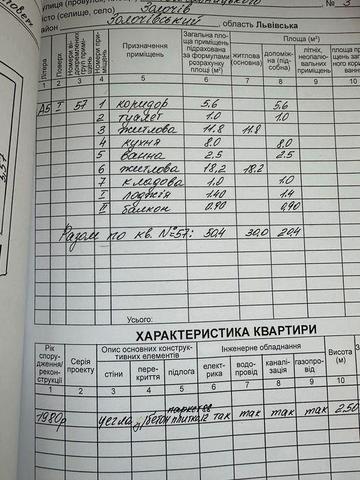 № 3
Золочів
місто (селище, село)
Золочівський, область Львівська
Літера
Поверх
Номери приміщень
Призначення приміщень
Загальна площа приміщень підрахована за формулами розрахунку площі (м²)
Площа (м²)
житлова (основна)
допоміжна (підсобна)
літніх, неопалювальних приміщень
1 2 3 4 5 6 7 8 9 10
А5 I 57 1 коридор 5.6 5.6
2 туалет 1.0 1.0
3 житлова 11.8 11.8
4 кухня 8.0 8.0
5 ванна 2.5 2.5
6 житлова 18,2 18,2
7 кладова 1.0 1.0
I лоджія 1.40 1.4
II балкон 0.90 0,90
Разом по кв. №57: 50,4 30,0 20,4
Усього:
ХАРАКТЕРИСТИКА КВАРТИРИ
Рік спорудження/реконструкції
Серія проекту
Опис основних конструктивних елементів
стіни
перекриття
підлога
Інженерне обладнання
електрика
водопровід
каналізація
газопровід
Висота (м)
1 2 3 4 5 6 7 8 9 10
паркет
1980р цегла з/бетон плитка так так так так 2.50